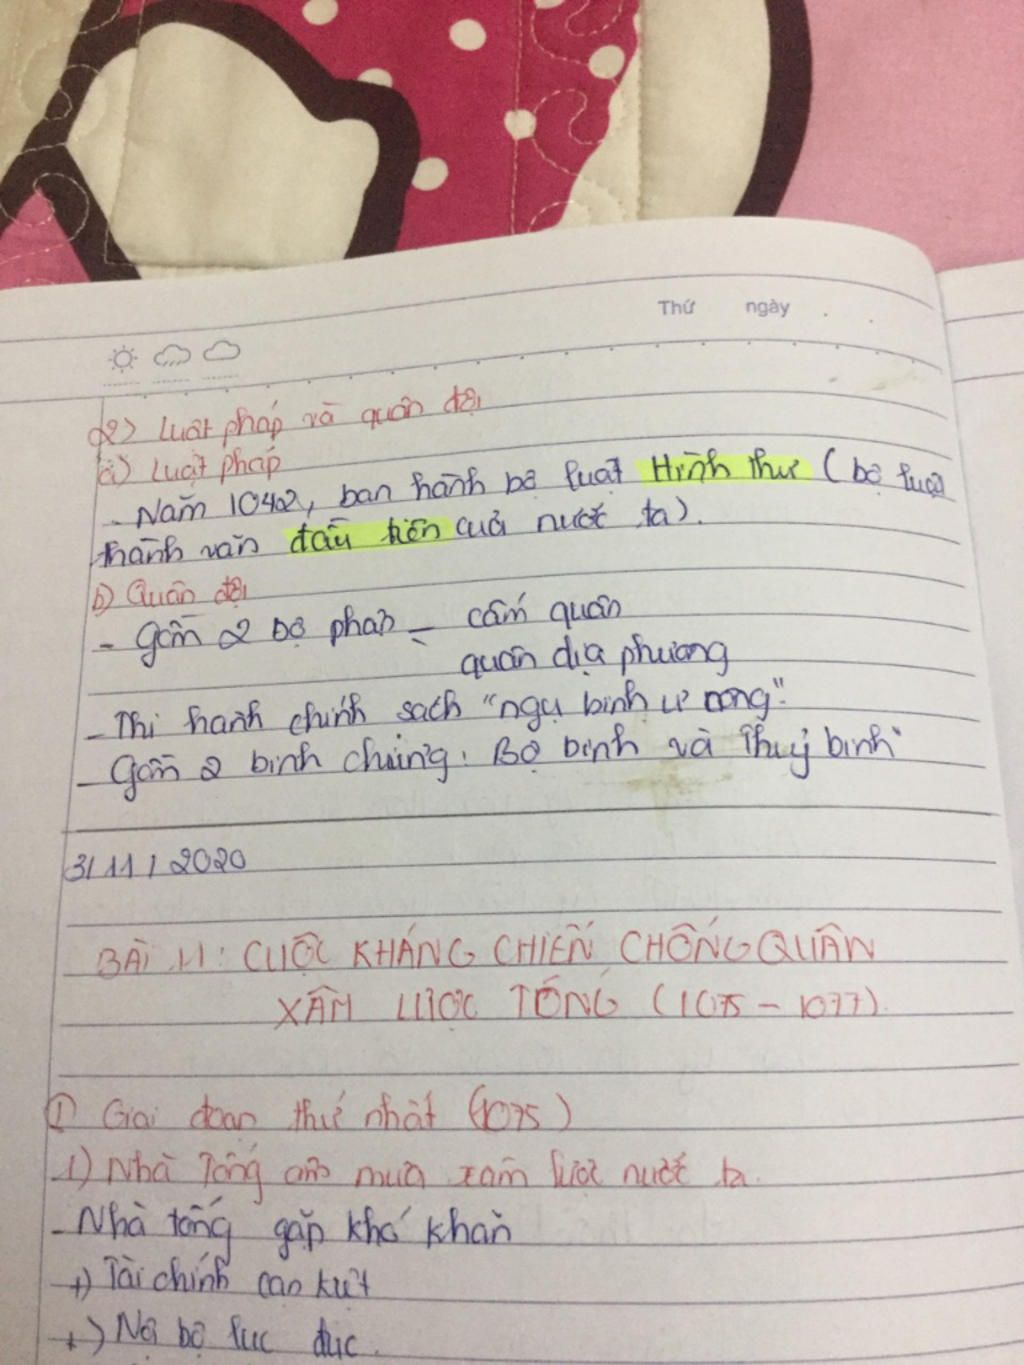 Thứ ngày
2) Luật pháp và quân đội
a) Luật pháp
- Năm 1042, ban hành bộ luật Hình thư ( bộ luật
thành văn đầu tiên của nước ta).
b) Quân đội
- Gồm 2 bộ phận - cấm quân
quân địa phương
- Thi hành chính sách "ngụ binh ư nông".
- Gồm 2 binh chủng: Bộ binh và Thuỷ binh
3/11/2020
BÀI 11: CUỘC KHÁNG CHIẾN CHỐNG QUÂN
XÂM LƯỢC TỐNG (1075 - 1077).
I Giai đoạn thứ nhất (1075)
1) Nhà Tống âm mưu xâm lược nước ta.
- Nhà tống gặp khó khăn
+) Tài chính cạn kiệt
+) Nội bộ lục đục.